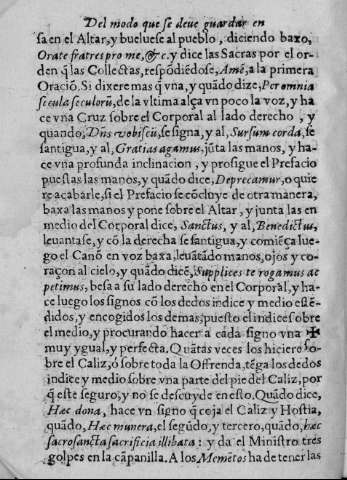 Del modo que se deve guardar en
sa en el Altar, y buelvese al pueblo, diciendo baxo,
Orate fratres pro me, &c. y dice las Sacras por el or-
den q̃ las Collectas, respõdiẽdose, Amẽ, a la primera
Oració. Si dixere mas q̃ vna, y quãdo dize, Per omnia
secula seculorũ, de la vltima alça vn poco la voz, y ha
ce vna Cruz sobre el Corporal al lado derecho, y
quando, Dñs vobiscũ, se signa, y al, Sursum corda, se
santigua, y al, Gratias agamus, jũta las manos, y ha-
ce vna profunda inclinacion, y prosigue el Prefacio
puestas las manos, y quãdo dice, Deprecamur, o quie
re acabarle, si el Prefacio se cõcluye de otra manera,
baxa las manos y pone sobre el Altar, y junta las en
medio del Corporal dice, Sanctus, y al, Benedictus,
levantase, y cõ la derecha se santigua, y comiẽça lue-
go el Canõ en voz baxa, levãtãdo manos, ojos y co-
raçon al cielo, y quãdo dicẽ, Supplices te rogamus ac
petimus, besa a su lado derecho en el Corporal, y ha-
ce luego los signos cõ los dedos indice y medio estẽ-
didos, y encogidos los demas; puesto el indice sobre
el medio, y procurando hacer a cada signo vna ✠
muy ygual, y perfecta. Quãtas veces los hiciere so-
bre el Caliz, ó sobre toda la Offrenda, tẽga los dedos
indice y medio sobre vna parte del pie del Caliz, por
q̃ este seguro, y no se descuyde en esto. Quãdo dice,
Hæc dona, hace vn signo q̃ coja el Caliz y Hostia,
quãdo, Hæc munera, el segũdo, y tercero, quãdo, hæc
sacrosancta sacrificia illibata: y da el Ministro tres
golpes en la cãpanilla. A los Memẽtos ha de tener las